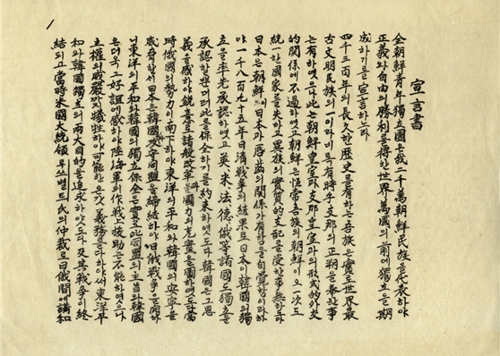 宣言書
全朝鮮青年獨立團은我二千萬朝鮮民族을代表하야
正義와自由의勝利를得한世界萬國의前에獨立을期
成하기를宣言하노라
四千三百年의長久한歷史를有하는吾族은實로世界最
古文明民族의一이라비록有時乎支那의正朔을奉한事
는有하엿으나此는朝鮮皇室과支那皇室과의形式的外交
的關係에不過하엿고朝鮮은恒常吾族의朝鮮이오一次도
統一한國家를失하고異族의實質的支配를受한事無하도다
日本은朝鮮이日本과唇齒의關係가有함을自覺함이라하
야一千八百九十五年日淸戰爭의結果로日本이韓國의獨
立을率先承認하엿고英米法德俄等諸國도獨立을
承認할뿐더러此를保全하기를約束하엿도다韓國은그恩
義를感하야銳意로諸般改革과國力의充實을圖하엿도다當
時俄國의勢力이南下하야東洋의平和와韓國의安寧을
威脅할새日本은韓國과攻守同盟을締結하야日俄戰爭을開하
니東洋의平和와韓國의獨立保全은實로此同盟의主旨와韓國
은더욱그好誼에感하야陸海軍의作戰上援助는不能하엿으나
主權의威嚴까지犧牲하야可能한온갖義務를다하야써東洋平
和와韓國獨立의兩大目的을追求하얏도다及其戰爭이終
結되고當時米國大統領루쓰벨트氏의仲裁로日俄間에講和
1